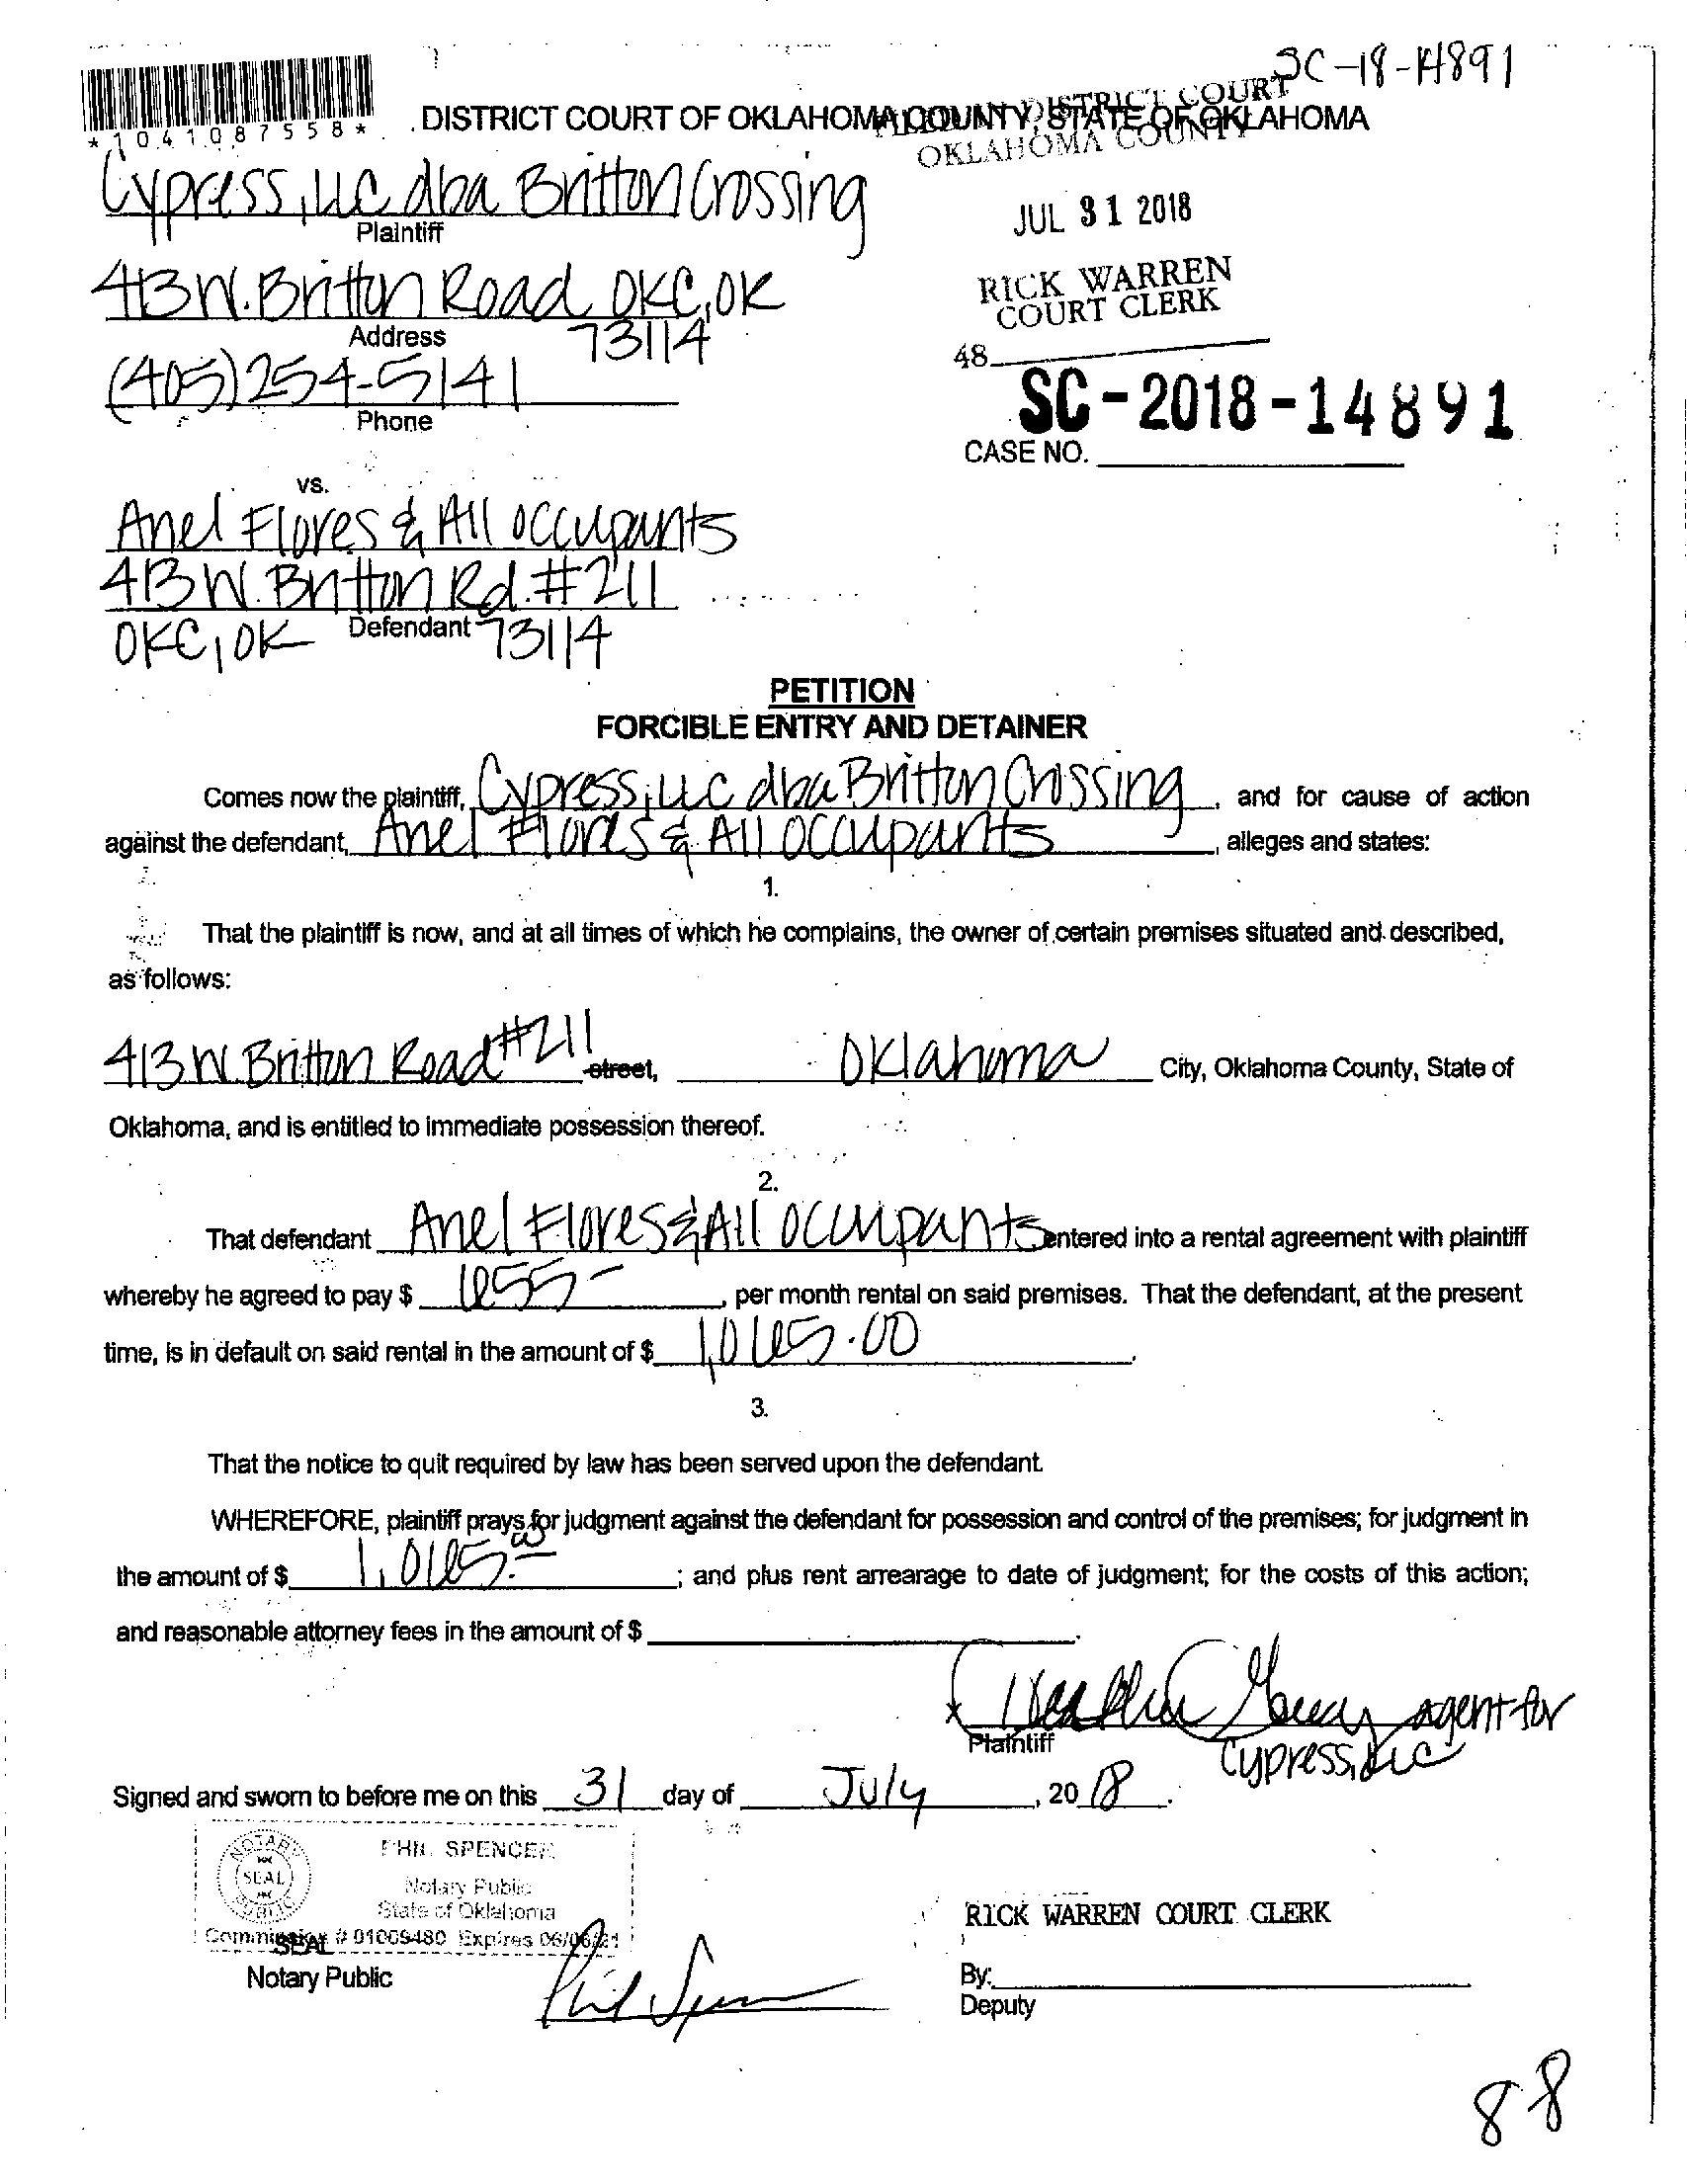 SC-18-14891
*1041087558*
DISTRICT COURT OF OKLAHOMA COUNTY, STATE OF OKLAHOMA
FILED IN DISTRICT COURT
OKLAHOMA COUNTY
Cypress, LLC dba Britton Crossing
Plaintiff
JUL 31 2018
413 W. Britton Road OKC, OK
Address 73114
RICK WARREN
COURT CLERK
48
(405) 254-5141
Phone
SC-2018-14891
CASE NO.
vs.
Anel Flores & All occupants
413 W. Britton Rd. #211
OKC, OK Defendant 73114
PETITION
FORCIBLE ENTRY AND DETAINER
Comes now the plaintiff, Cypress, LLC dba Britton Crossing, and for cause of action
against the defendant, Anel Flores & All occupants, alleges and states:
1.
That the plaintiff is now, and at all times of which he complains, the owner of certain premises situated and described,
as follows:
413 W. Britton Road #211 street, Oklahoma City, Oklahoma County, State of
Oklahoma, and is entitled to immediate possession thereof.
2.
That defendant Anel Flores & All occupants entered into a rental agreement with plaintiff
whereby he agreed to pay $ 655-, per month rental on said premises. That the defendant, at the present
time, is in default on said rental in the amount of $ 1,065.00.
3.
That the notice to quit required by law has been served upon the defendant.
WHEREFORE, plaintiff prays for judgment against the defendant for possession and control of the premises; for judgment in
the amount of $ 1,065.00; and plus rent arrearage to date of judgment; for the costs of this action;
and reasonable attorney fees in the amount of $ .
x agent for
Plaintiff Cypress, LLC
Signed and sworn to before me on this 31 day of July, 2018.
NOTARY PUBLIC SEAL
PHIL SPENCER
Notary Public
State of Oklahoma
Commission # 01009480 Expires 06/06/21
SEAL
Notary Public
Phil Spencer
RICK WARREN COURT CLERK
By:
Deputy
88